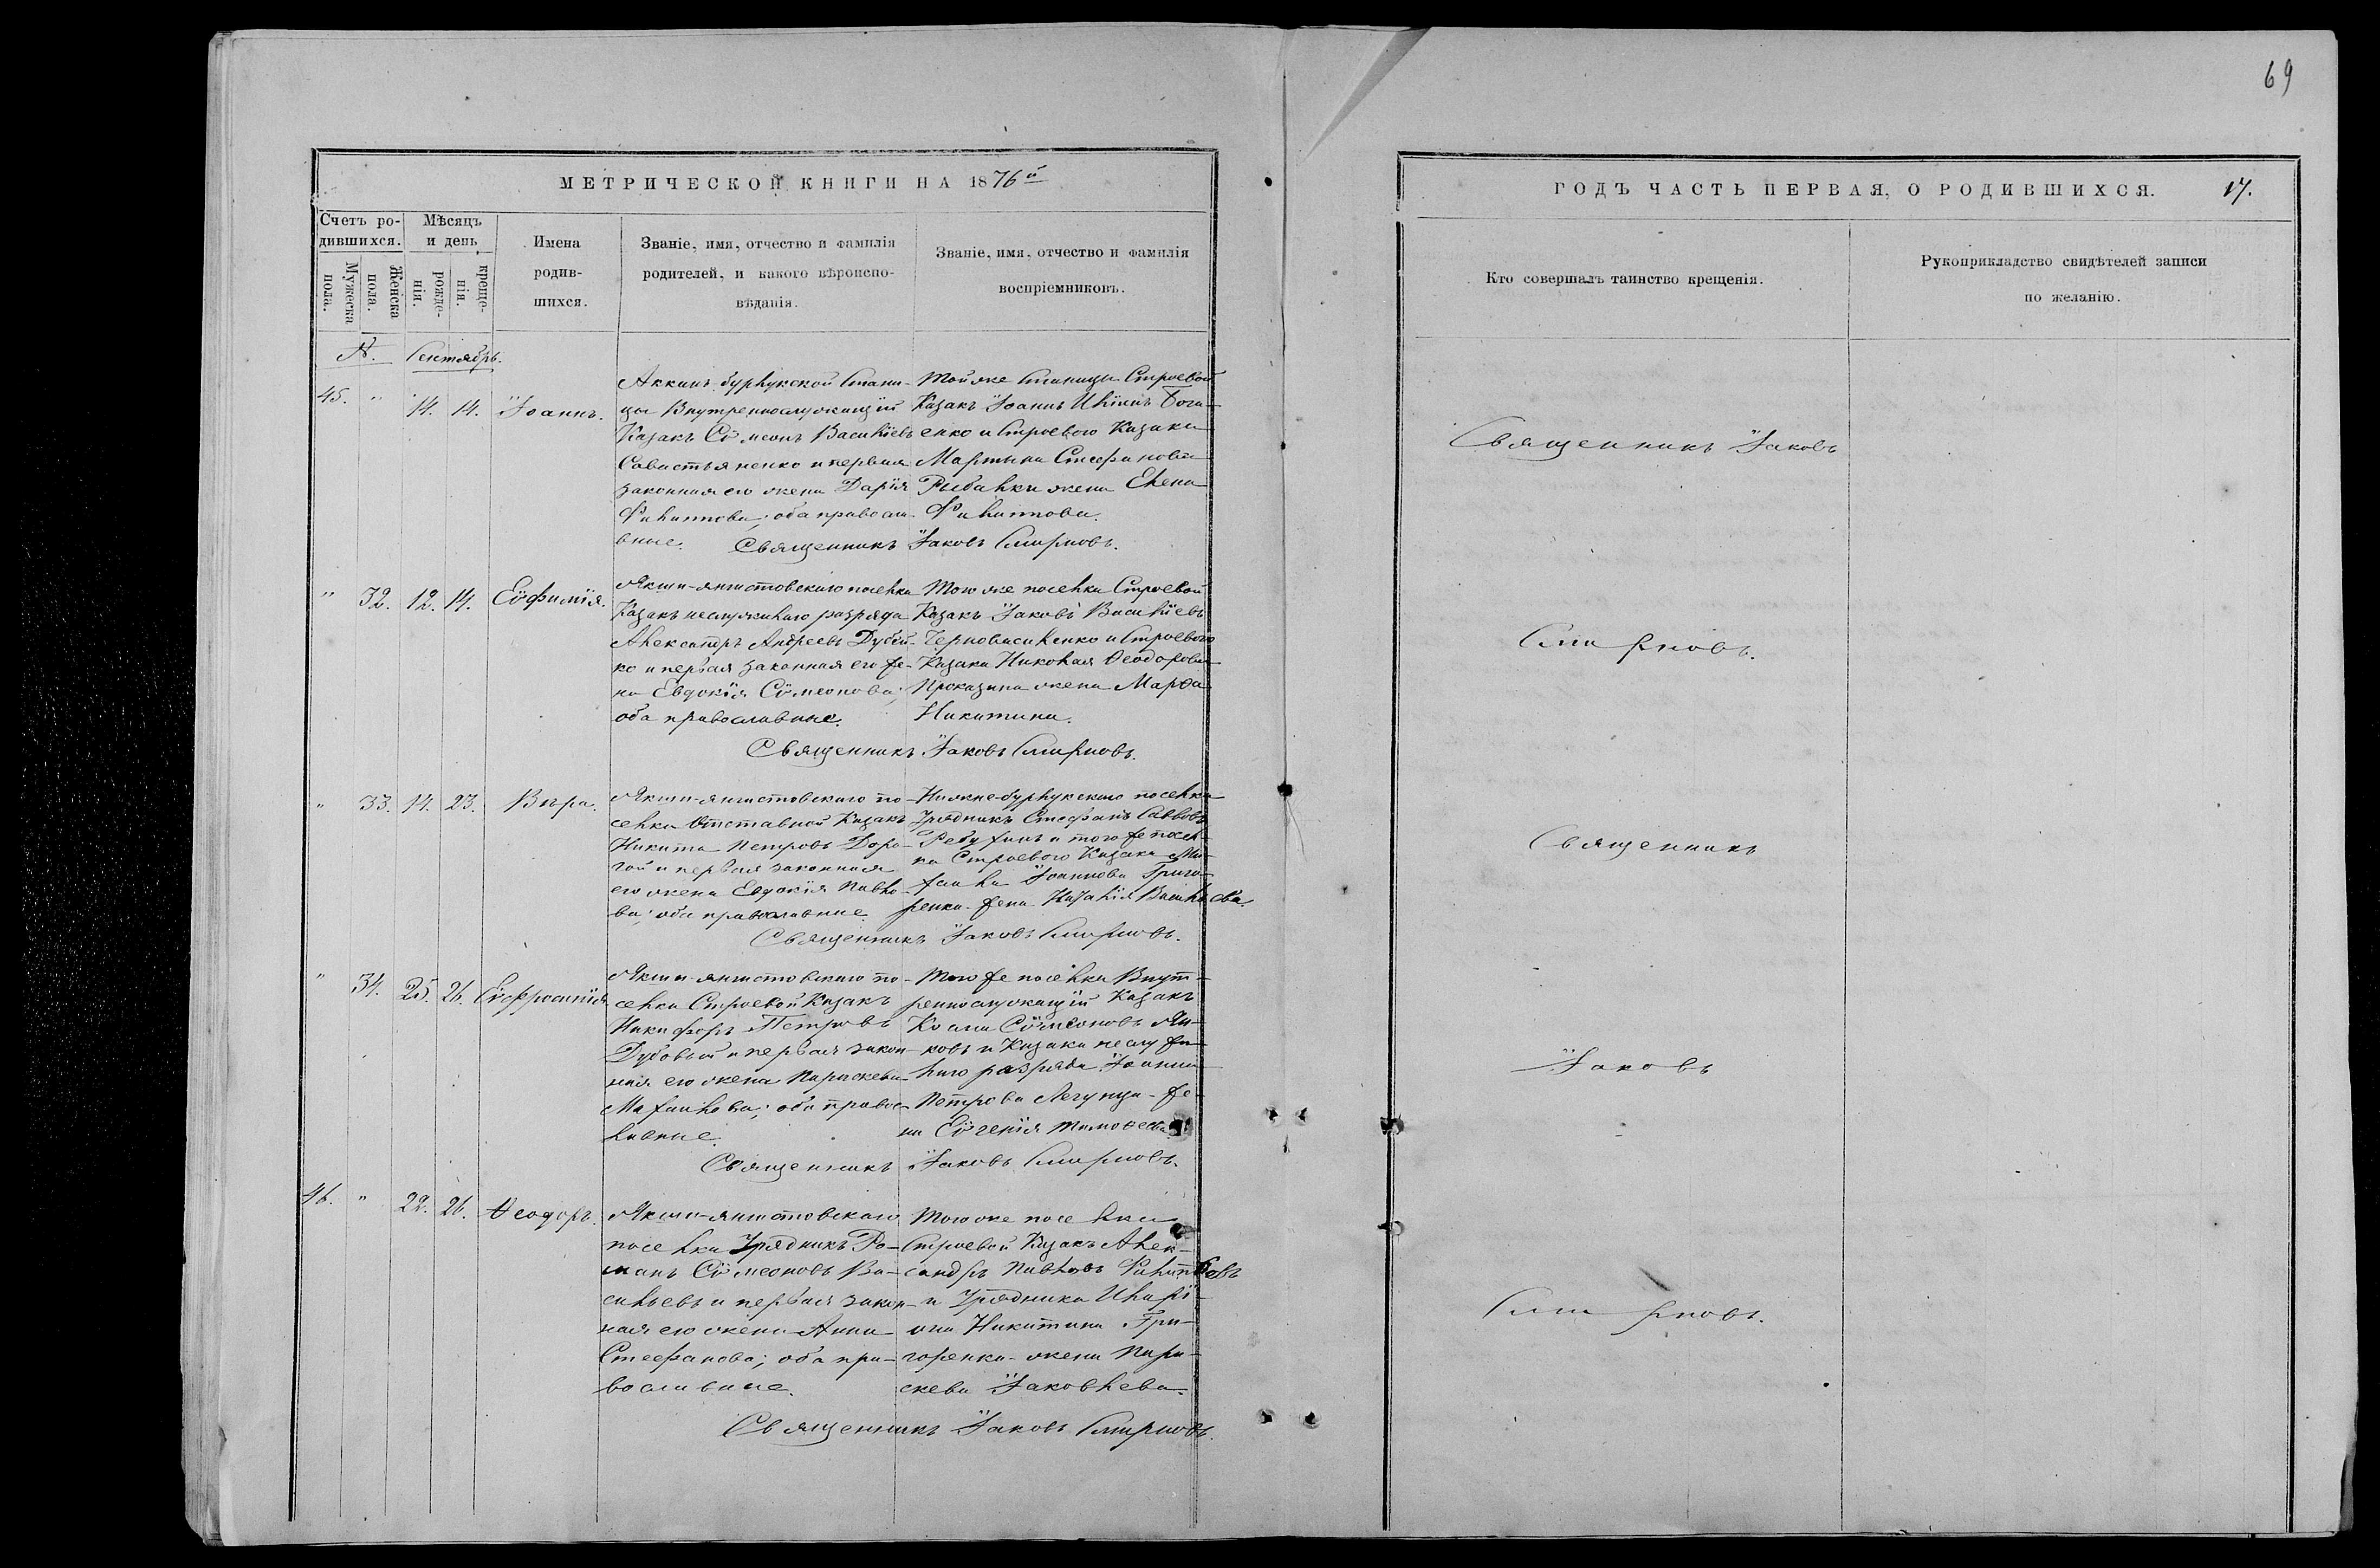 69
МЕТРИЧЕСКОЙ КНИГИ НА 1876й
ГОДЪ ЧАСТЬ ПЕРВАЯ, О РОДИВШИХСЯ. 17.
Счетъ ро-
дившихся.
Мужеска
пола.
Женска
пола.
Мѣсяцъ
и день
рожде-
нія.
креще-
нія.
Имена
родив-
шихся.
Званіе, имя, отчество и фамилія
родителей, и какого вѣроиспо-
вѣданія.
Званіе, имя, отчество и фамилія
воспріемниковъ.
Кто совершалъ таинство крещенія.
Рукоприкладство свидѣтелей записи
по желанію.
№. Сентябрь.
45. " 14. 14. Іоаннъ.
Аккинъ-бурлукской Стани-
цы Внутреннослужащій
Казакъ Сѵмеонъ Василіевъ
Савастьяненко и первая
законная его жена Дарія
Филиппова; оба правосла-
вные.
Той же Станицы Строевой
Казакъ Іоаннъ Иліинъ Бога-
енко и Строеваго Казака
Мартына Стефанова
Рыбалки жена Елена
Филиппова.
Священникъ Іаковъ Смирновъ.
" 32. 12. 14. Еѵфимія.
Якши-янгистовскаго поселка
Казакъ неслужилаго разряда
Александръ Андреевъ Дубей-
ко и первая законная его же-
на Евдокія Сѵмеонова;
оба православные.
Того же поселка Строевой
Казакъ Іаковъ Василіевъ
Черновасиленко и Строевого
Казака Николая Ѳеодорова
Проказина жена Марѳа
Никитина.
Священникъ Іаковъ Смирновъ.
" 33. 14. 23. Вѣра.
Якши-янгистовскаго по-
селка Отставной Казакъ
Никита Петровъ Доро-
гой и первая законная
его жена Евдокія Павло-
ва; оба православные.
Нижне-бурлукскаго поселка
Урядникъ Стефанъ Савовъ
и того же посел-
ка Строевого Казака Ми-
хаила Іоаннова Григо-
ренки жена Наталія Васильева.
Священникъ Іаковъ Смирновъ.
" 34. 25. 26. Еѵфросинія
Якши-янгистовскаго по-
селка Строевой Казакъ
Никифоръ Петровъ
Дубовый и первая закон-
ная его жена Параскева
Михаилова; оба правос-
лавные.
Того же поселка Внут-
реннослужащій Казакъ
Косма Сѵмеоновъ Яи-
ковъ и Казака неслужи-
лаго разряда Іоанна
Петрова Лагунца же-
на Еѵгенія Тимоѳеева
Священникъ Іаковъ Смирновъ.
46. " 22. 26. Ѳеодоръ.
Якши-янгистовскаго
поселка Урядникъ Ро-
манъ Сѵмеоновъ Ва-
сильевъ и первая закон-
ная его жена Анна
Стефанова; оба пра-
вославные.
Того же поселка
Строевой Казакъ Алек-
сандръ Павловъ Филипповъ
и Урядника Иларі-
она Никитина Гри-
горенки жена Пара-
скева Іаковлева.
Священникъ Іаковъ Смирновъ.
Священникъ Іаковъ
Смирновъ.
Священникъ
Іаковъ
Смирновъ.